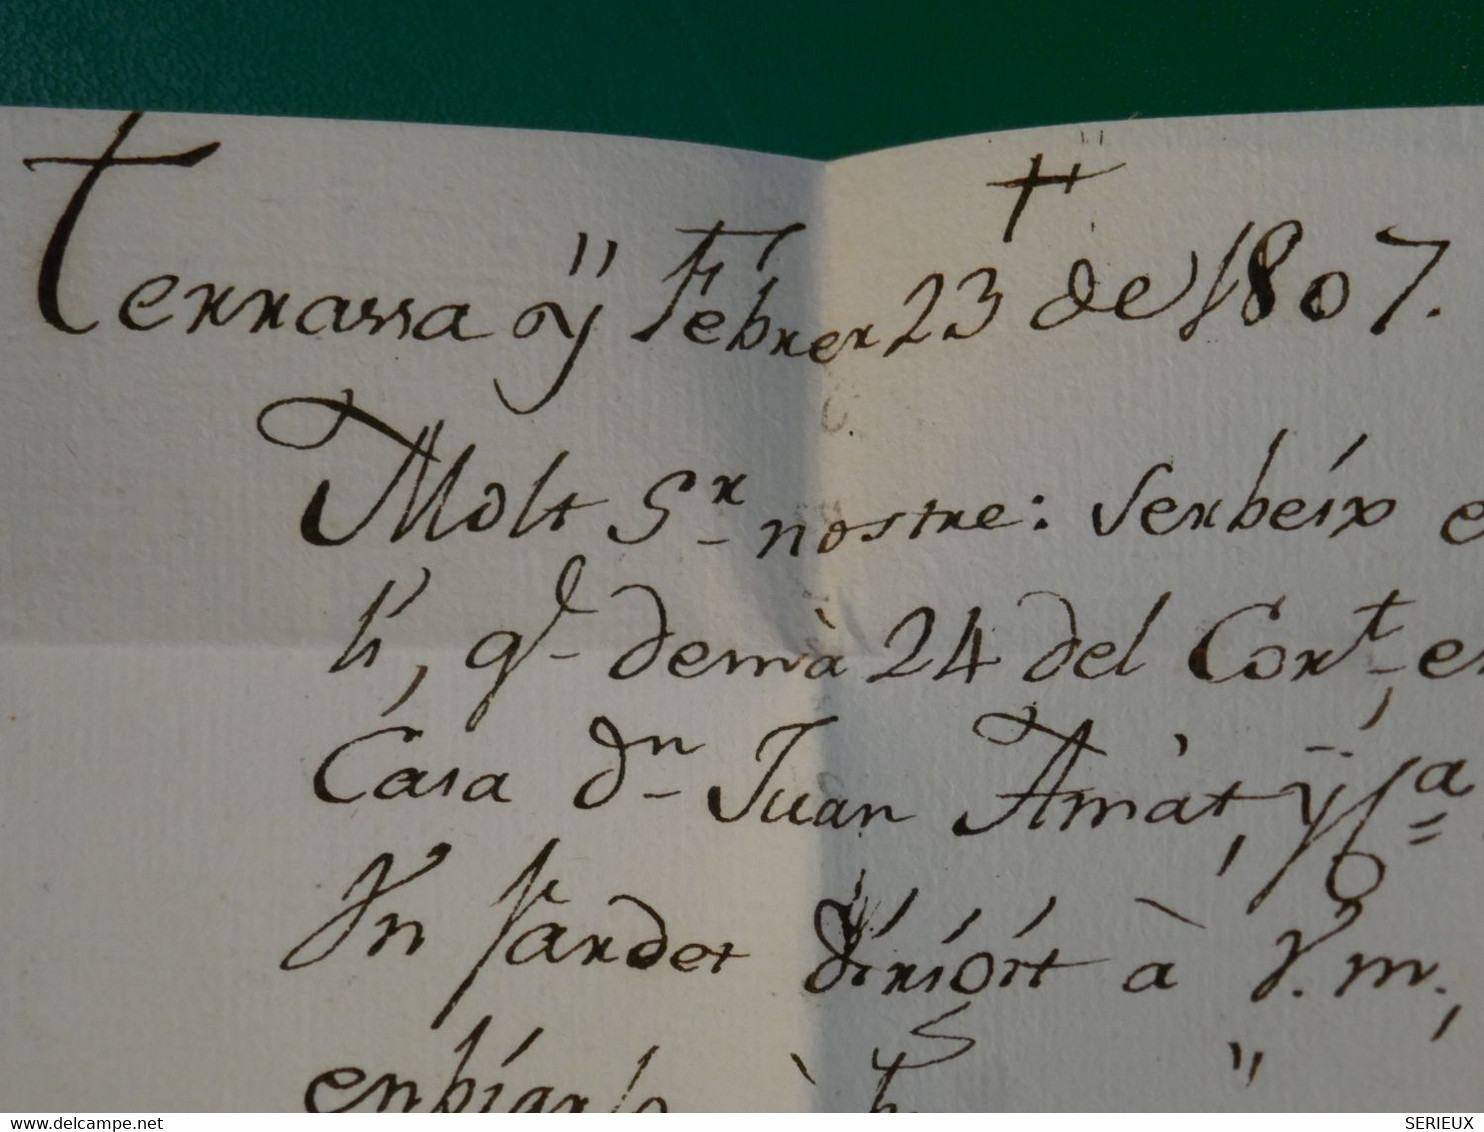 +
Terrassa y Febrer 23 de 1807.
Molt Sr. nostre: Serbeix e
li, qe. demà 24 del Corrt., e
Casa Dn. Juan Amat, y sa
Un fardet dirigit à V. m.,
enbiarlo à
SERIEUX